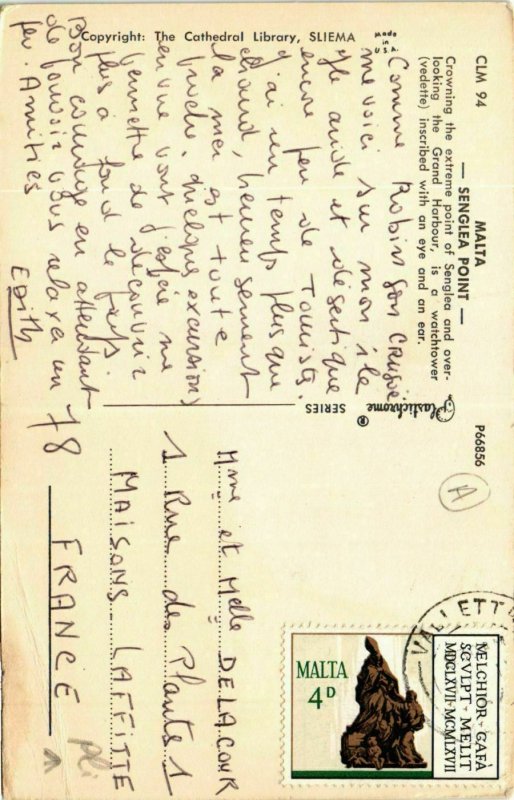 CLM 94
MALTA
— SENGLEA POINT —
Crowning the extreme point of Senglea and over-
looking the Grand Harbour, is a watchtower
(vedette) inscribed with an eye and an ear.
Made in
U.S.A.
Copyright: The Cathedral Library, SLIEMA
Plastichrome ®
SERIES
P66856
Comme Robinson Crusoé
me voici sur mon île
aride et désertique
encore peu de Touristes.
J'ai un temps plus que
chaud, heureusement
la mer est toute
proche. quelques excursions
en vue vont j'espère me
permettre de découvrir
plus à fond le pays
Bon courage en attendant
de pouvoir vous relaxer un
peu. Amitiés
Edith
A
Mme et Melle DELACOUR
1 Rue des Plantes 1
MAISONS LAFFITTE
78 FRANCE
VALLETTA
MALTA
4D
MELCHIOR · GAFÀ
SCVLPT · MELIT
MDCLXVII · MCMLXVII